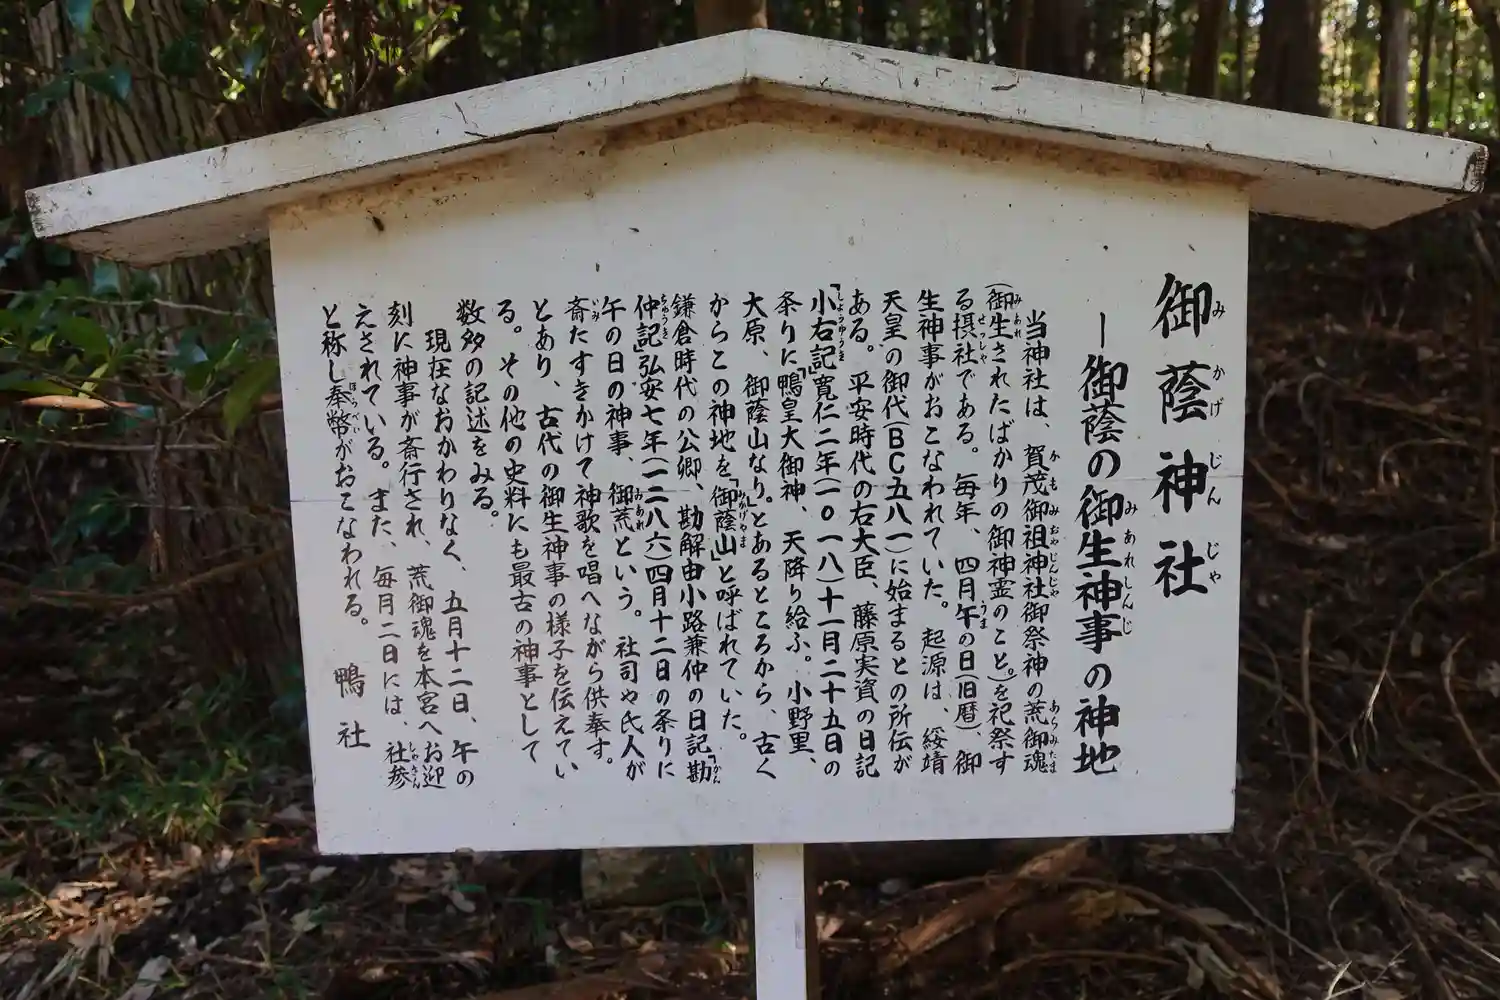 御蔭神社
―御蔭の御生神事の神地
当神社は、賀茂御祖神社御祭神の荒御魂
(御生されたばかりの御神霊のこと。)を祀祭す
る摂社である。毎年、四月午の日(旧暦)、御
生神事がおこなわれていた。起源は、綏靖
天皇の御代(BC五八一)に始まるとの所伝が
ある。平安時代の右大臣、藤原実資の日記
「小右記」寛仁二年(一〇一八)十一月二十五日の
条りに「鴨皇大御神、天降り給ふ。小野里、
大原、御蔭山なり」とあるところから、古く
からこの神地を「御蔭山」と呼ばれていた。
鎌倉時代の公卿、勘解由小路兼仲の日記「勘
仲記」弘安七年(一二八六)四月十二日の条りに
午の日の神事、御荒という。社司や氏人が
斎たすきかけて神歌を唱へながら供奉す。
とあり、古代の御生神事の様子を伝えてい
る。その他の史料にも最古の神事として
数多の記述をみる。
現在なおかわりなく、五月十二日、午の
刻に神事が斎行され、荒御魂を本宮へお迎
えされている。また、毎月二日には、社参
と称し奉幣がおこなわれる。
鴨社